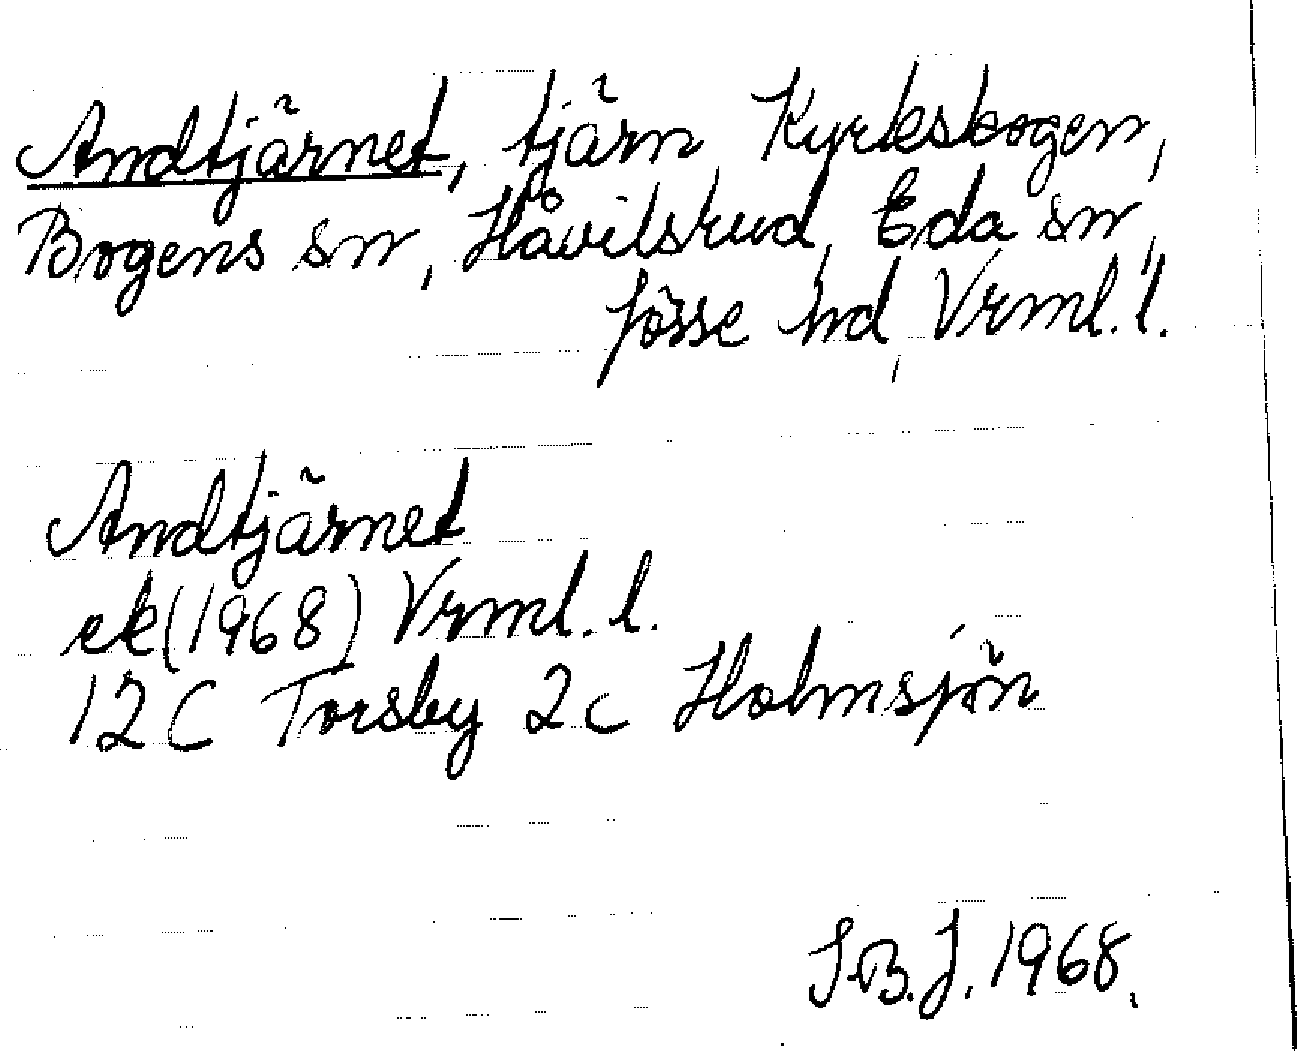 Andtjärnet, tjärn, Kyrkskogen,
Bogens sn, Håvilsrud, Eda sn,
Jösse hd, Vrml. l.
Andtjärnet
ek (1968) Vrml. l.
12 C Torsby 2 c Holmsjön
S.B.J. 1968.